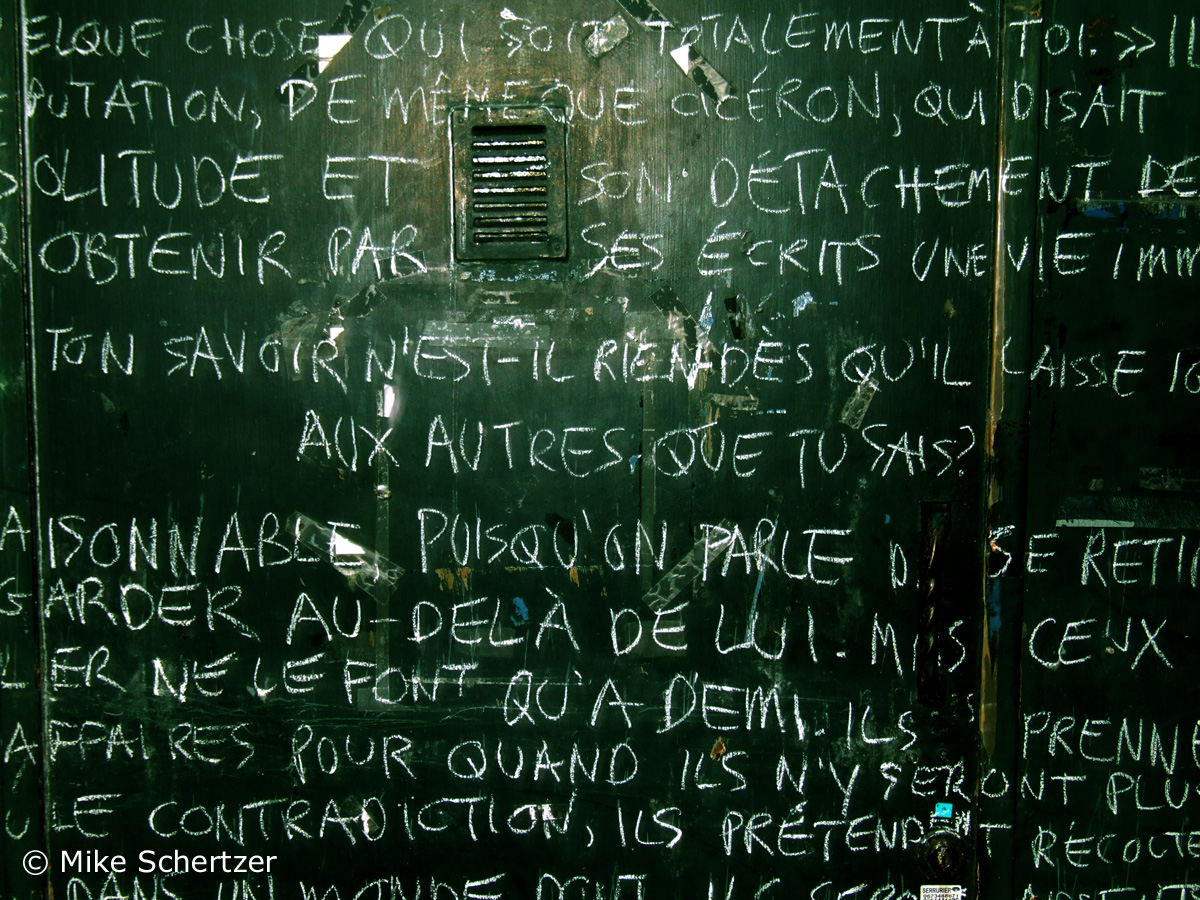 ELQUE CHOSE QUI SOIT TOTALEMENT À TOI. >> IL
PUTATION, DE MÊME QUE CICÉRON, QUI DISAIT
SOLITUDE ET SON DÉTACHEMENT DE
R OBTENIR PAR SES ÉCRITS UNE VIE IMM
TON SAVOIR N'EST-IL RIEN DÈS QU'IL LAISSE IG
AUX AUTRES QUE TU SAIS?
AISONNABLE, PUISQU'ON PARLE D SE RETI
GARDER AU-DELÀ DE LUI. M IS CEUX
LER NE LE FONT QU'À DEMI. ILS PRENNE
AFFAIRES POUR QUAND ILS N'Y SERONT PLUS
ULE CONTRADICTION, ILS PRÉTENDENT RÉCOLTE
DANS UN MONDE DONT ILS SERON
SERRURIER
© Mike Schertzer